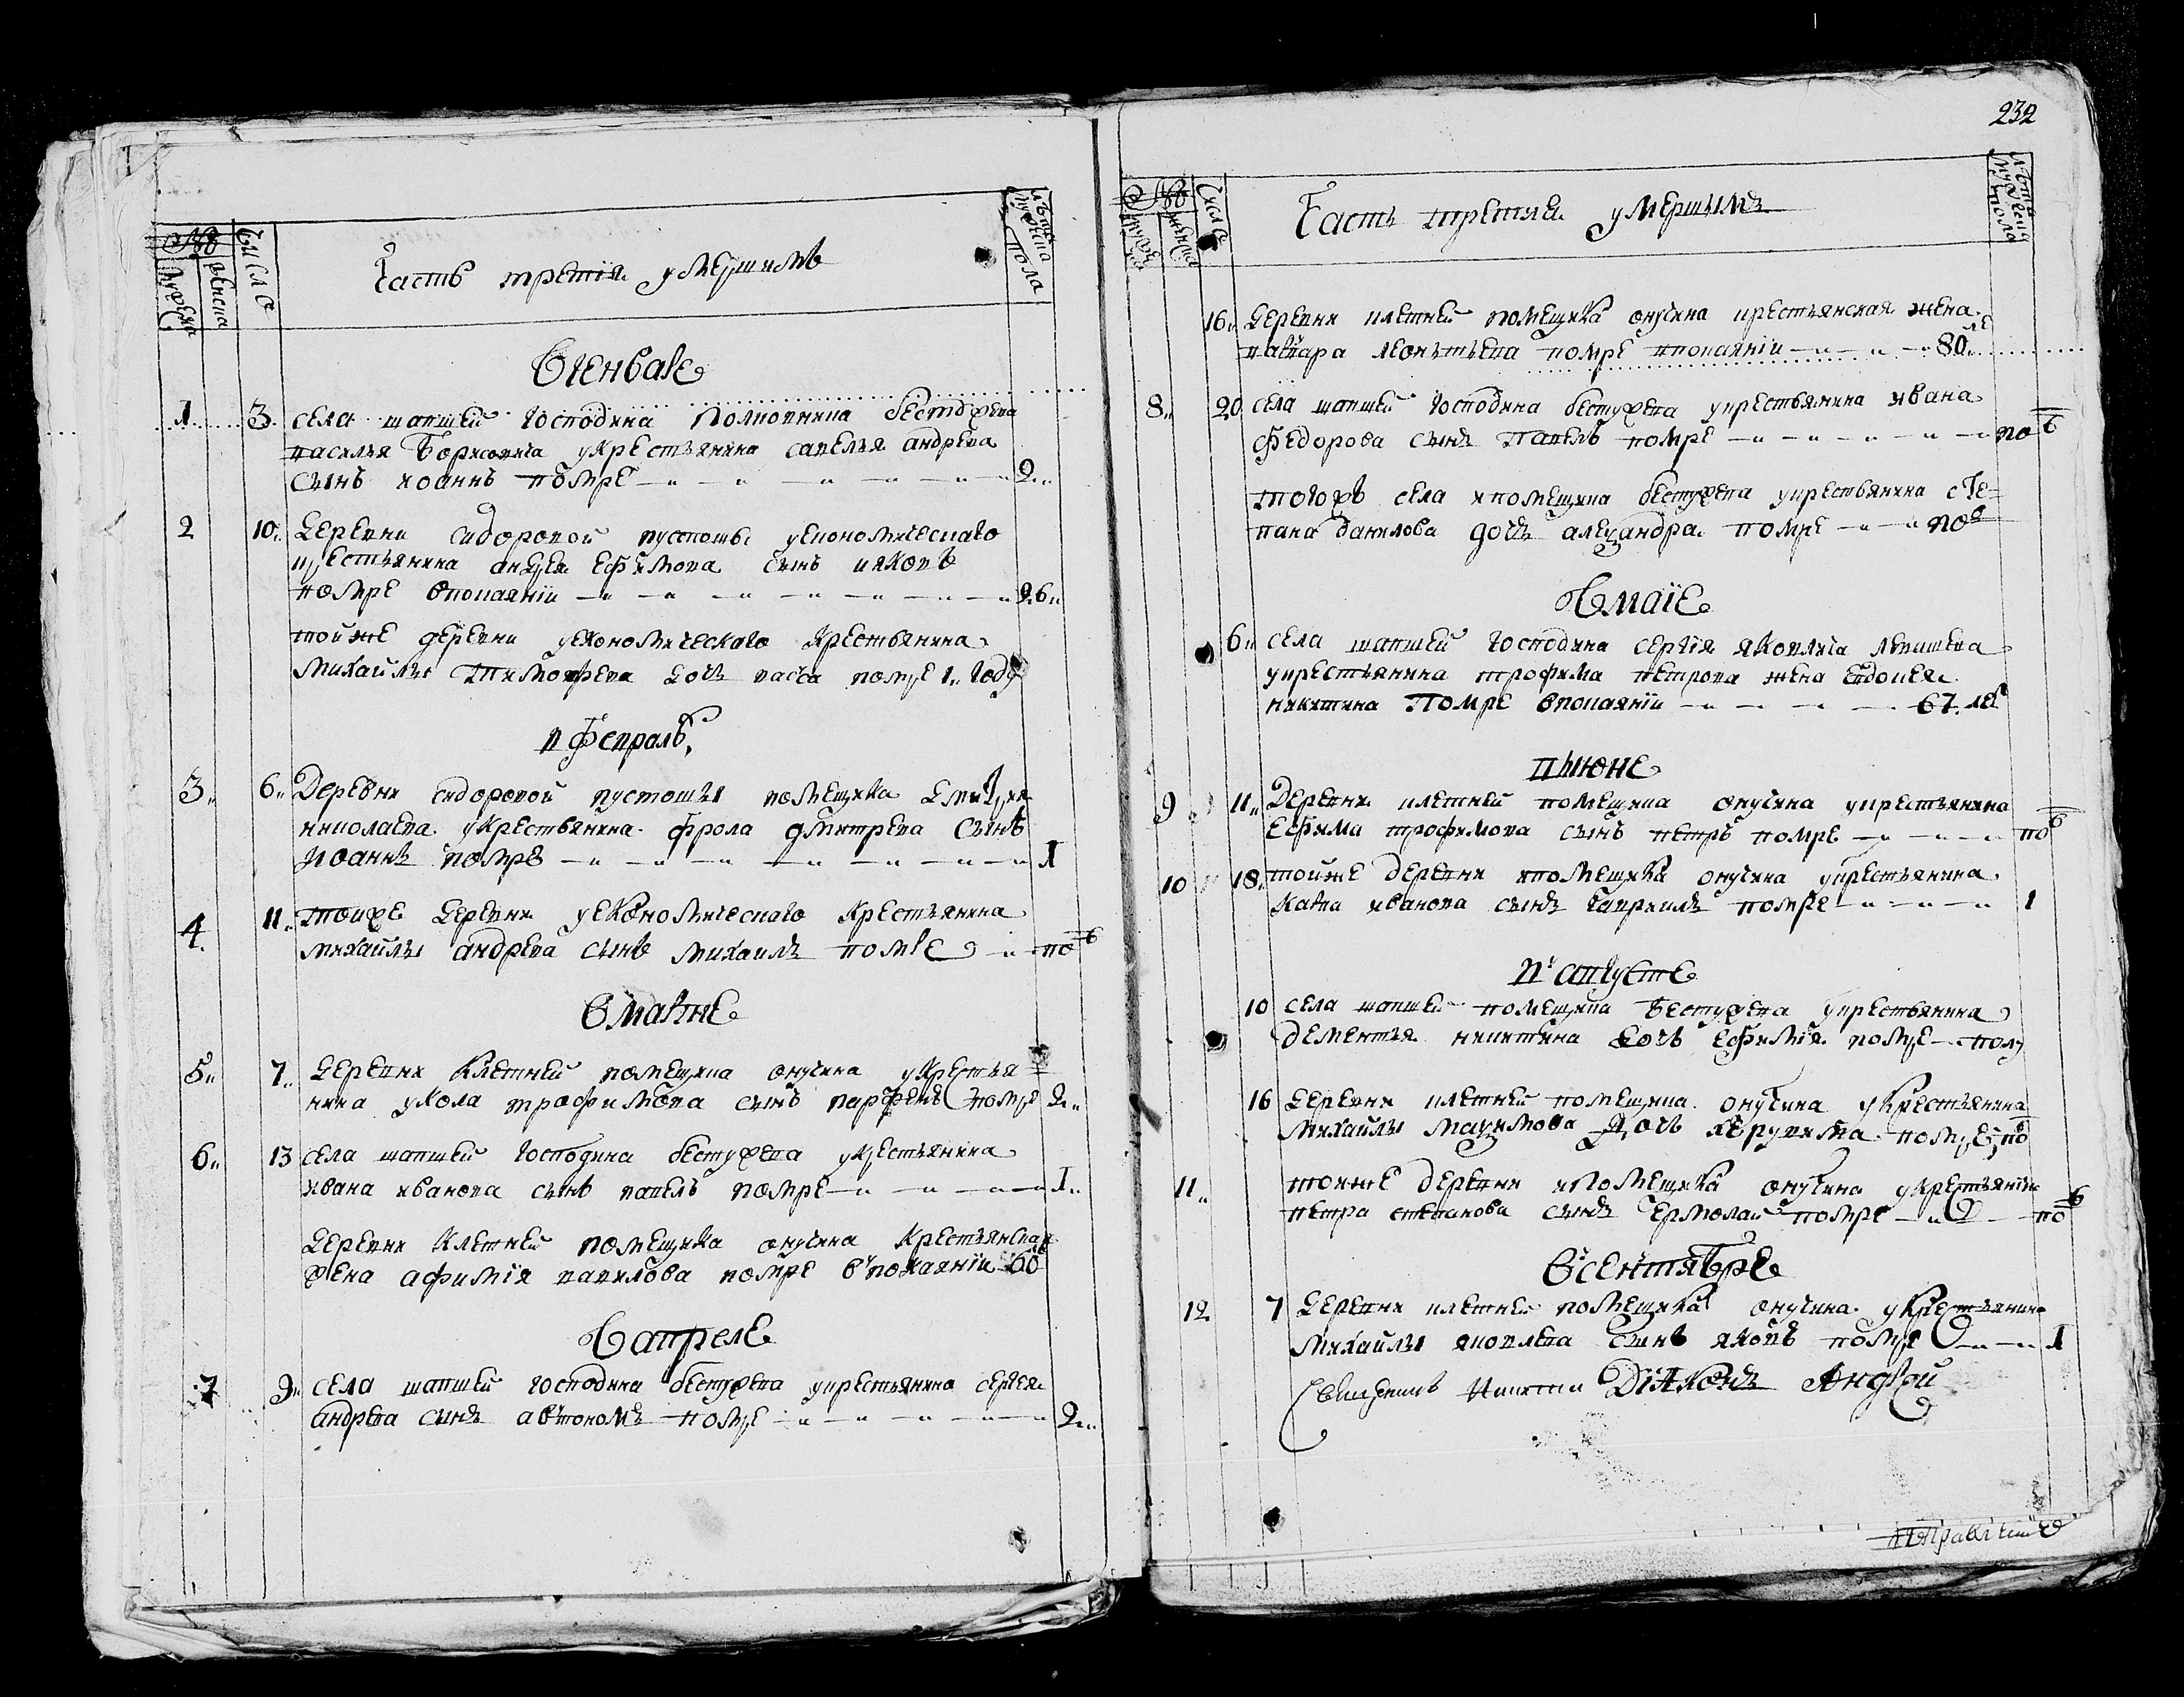 №
мужеска
женска
Число
Часть третїя умершимъ
лѣта мужеска пола
Вгенваре
1 3 села шапшей господина Полковника бестужева
василья Борисовича укрестьянина савелья андреева
сынъ иоаннъ помре 2
2 10 Деревни сидоровой пустоши уекономическаго
крестьянина андрея ефимова сынъ ияковъ
помре впокаянїи 26
тойже деревни уекономическаго крестьянина
михайлы тимофеева дочь васса помре 1 году
в февралѣ
3 6 Деревни сидоровой пустоши помещика дмитрия
николаева укрестьянина фрола дмитрева сынъ
иоаннъ помре 1
4 11 тоиже деревни уекономическаго крестьянина
михайлы андреева сынъ михаилъ помре по
Вмарте
5 7 деревни клетней помещика онучина укрестья
нина укола трофимова сынъ парфенъ помре 2
6 13 села шапшей господина бестужева укрестьянина
ивана иванова сынъ павелъ помре 1
деревни клетней помещика онучина крестьянская
жена афимїя вавилова помре впокаянїи 60
Вапреле
7 9 села шапшей господина бестужева укрестьянина сергея
андреева сынъ автономъ помре 2
232
№
мужеска
женска
Число
Часть третїя умершимъ
лѣта мужеска пола
16 Деревни клетней помещика онучина крестьянская жена
варвара леонтьева помре впокаянїи 80 ле
8 20 села шапшей господина бестужева укрестьянина ивана
федорова сынъ Павелъ помре по
тогожъ села ипомещика бестужева укрестьянина сте=
пана данилова дочь алеѯандра помре по
Вмаїе
6 села шапшей господина сергїя яковлича левашева
укрестьянина трофима петрова жена евдокея
никитина Помре впокаянїи 67 лет
виюне
9 11 Деревни клетней помещика онучина укрестьянина
Ефима трофимова сынъ петръ помре по
10 18 тойже деревни ипомещика онучина укрестьянина
карпа иванова сынъ гавриилъ помре 1
в августе
10 села шапшей помещика бестужева укрестьянина
дементья никитина дочь ефимїя помре полу
16 деревни клетней помещика онучина укрестьянина
михайлы маѯимова дочь херувима помре по
11 тоиже деревни ипомещика онучина укрестьянина
петра степанова сынъ Ермолай помре по
Всентябре
12 7 деревни клетней помещика онучина укрестьянина
михайлы яковлева сынъ яковъ помре 1
Священникъ Никита Дїаконъ Андрей